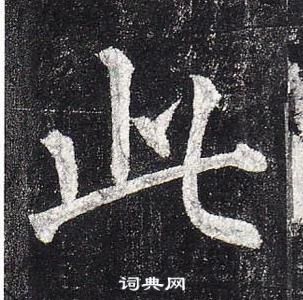 此
词典网